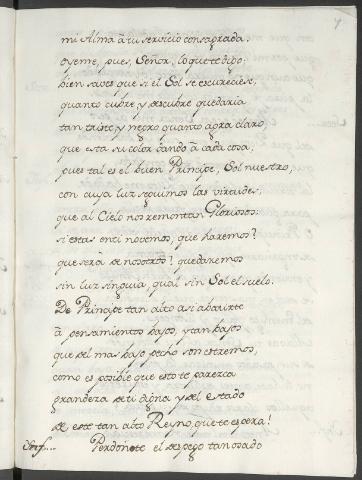 7
mi Alma à tu servicio consagrada:
oyeme, pues, Señor, lo que te digo;
bien saves que si el Sol se escureciese,
quanto cubre, y descubre quedaria
tan triste, y negro quanto agora claro,
que està su color dando à cada cosa;
pues tal es el buen Principe, Sol nuestro,
con cuya luz seguimos las virtudes,
que al Cielo nos remontan Gloriosos:
si estas en ti no vemos, què haremos?
què serà de nosotros? quedaremos
sin luz sin guia, qual sin Sol el suelo.
De Principe tan alto asi abatirte
à pensamientos bajos, y tan bajos
que del mas bajo pecho son estremos,
como es posible que esto te parezca
grandeza de ti digna, y del estado
de este tan alto Reyno, que te espera!
Perdonete el despego tan osado